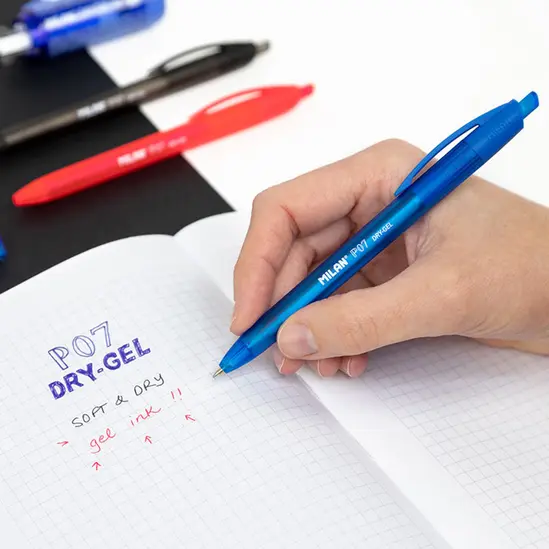 MILAN
MILAN P07
MILAN® P07 DRY-GEL
P07
DRY-GEL
SOFT & DRY
gel ink !!